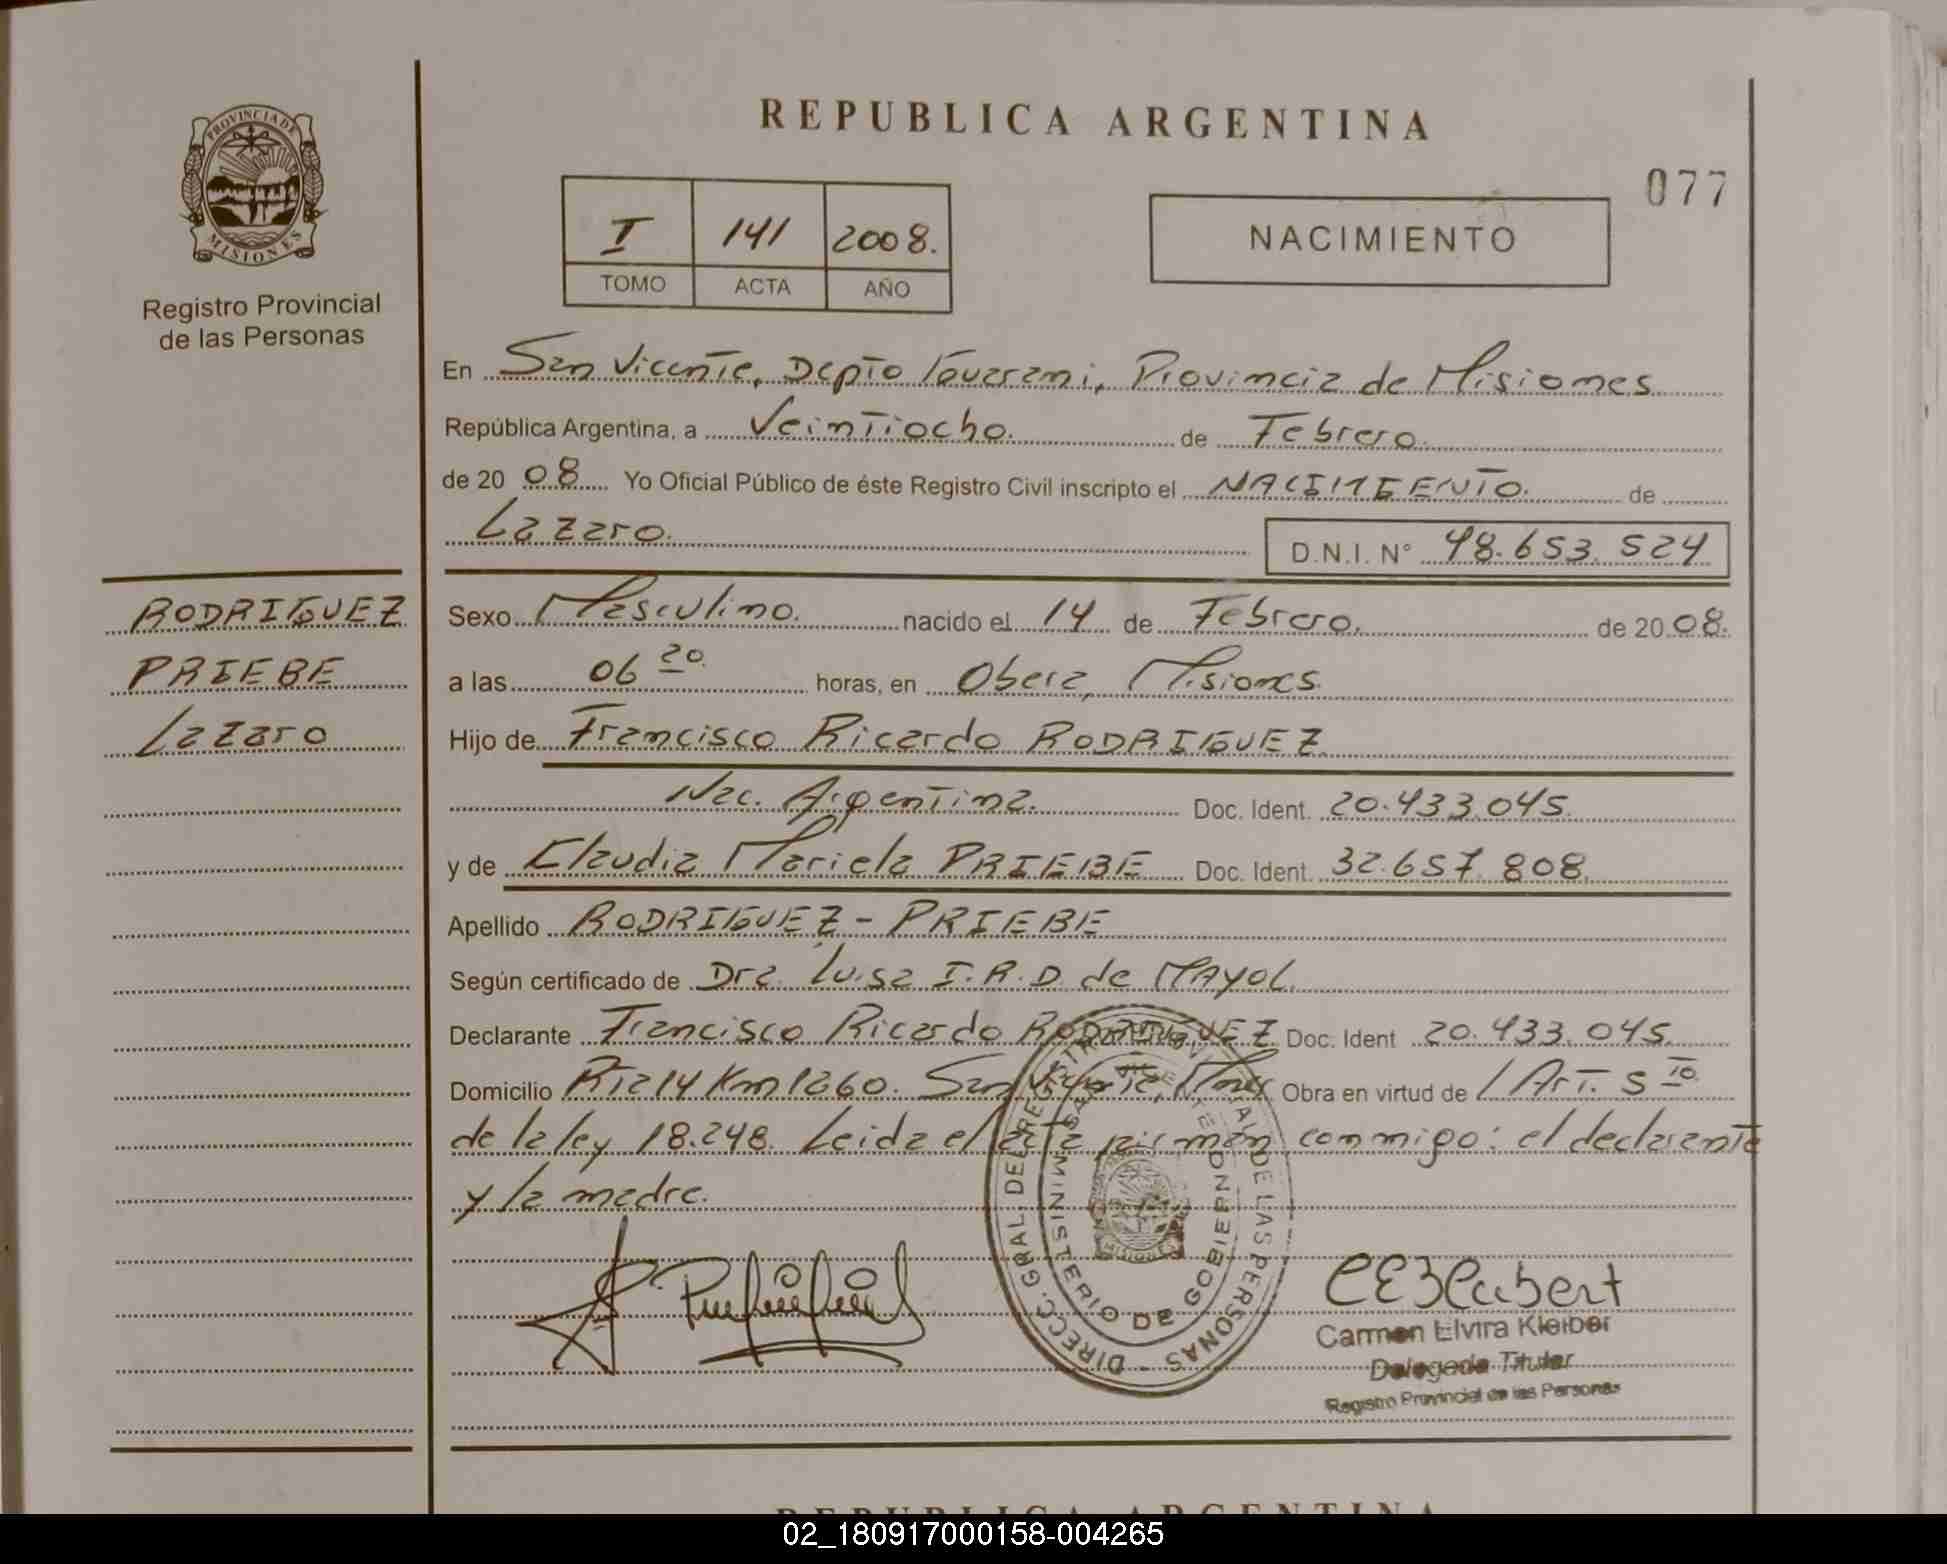 REPUBLICA ARGENTINA
077
PROVINCIA DE
MISIONES
Registro Provincial
de las Personas
I 141 2008.
TOMO ACTA AÑO
NACIMIENTO
En San Vicente, Depto Guarani, Provincia de Misiones
República Argentina, a Veintiocho. de Febrero.
de 20 08 Yo Oficial Público de éste Registro Civil inscripto el NACIMIENTO. de
Lazaro. D.N.I. N° 48.653.524
RODRIGUEZ
PRIEBE
Lazaro
Sexo Masculino. nacido el 14 de Febrero. de 20 08.
a las 06 20. horas, en Obera, Misiones.
Hijo de Francisco Ricardo RODRIGUEZ.
Nac. Argentina. Doc. Ident. 20.433.045.
y de Claudia Mariela PRIEBE Doc. Ident. 32.657.808.
Apellido RODRIGUEZ - PRIEBE
Según certificado de Dra. Luisa I.R.D. de MAYOL.
Declarante Francisco Ricardo RODRIGUEZ Doc. Ident 20.433.045.
Domicilio Rta 14 Km 1260. San Vicente, Mnes Obra en virtud de / Art. 5 to.
de la ley 18.248. Leida el acta firman conmigo: el declarante
y la madre.
DIRECC. GRAL. DEL REGISTRO PROVINCIAL DE LAS PERSONAS
MINISTERIO DE GOBIERNO
MISIONES
Carmen Elvira Kleiber
Delegada Titular
Registro Provincial de las Personas
REPUBLICA ARGENTINA
02_180917000158-004265